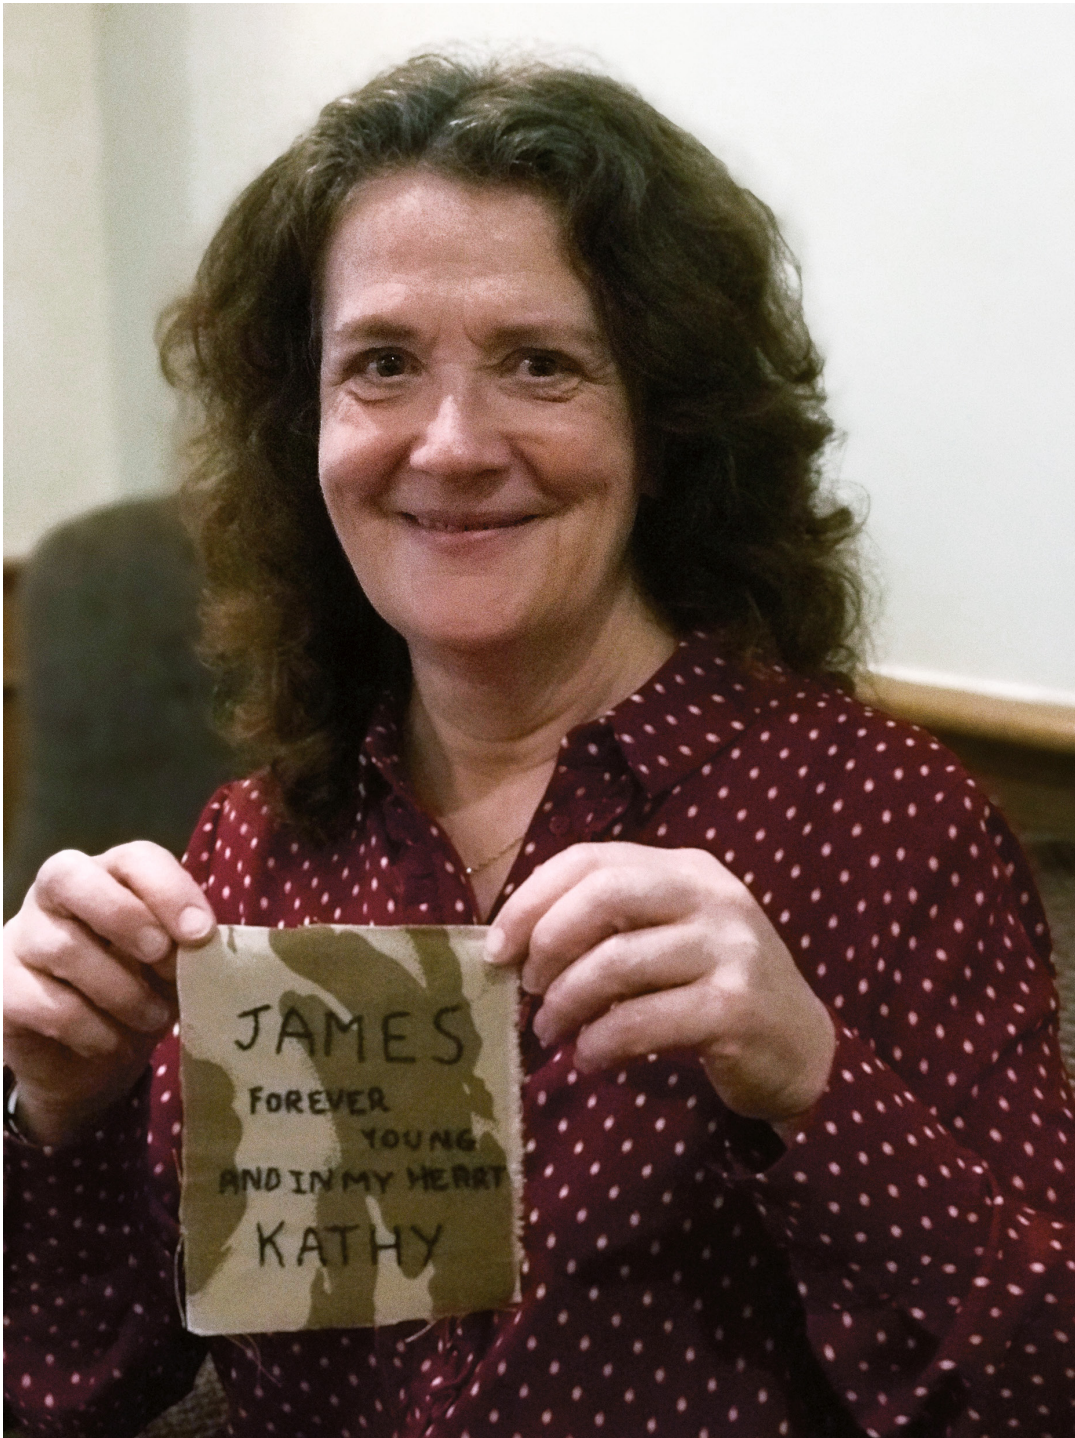 JAMES
FOREVER
YOUNG
AND IN MY HEART
KATHY